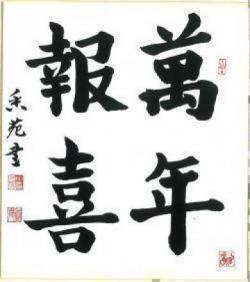 萬年
報喜
香苑書